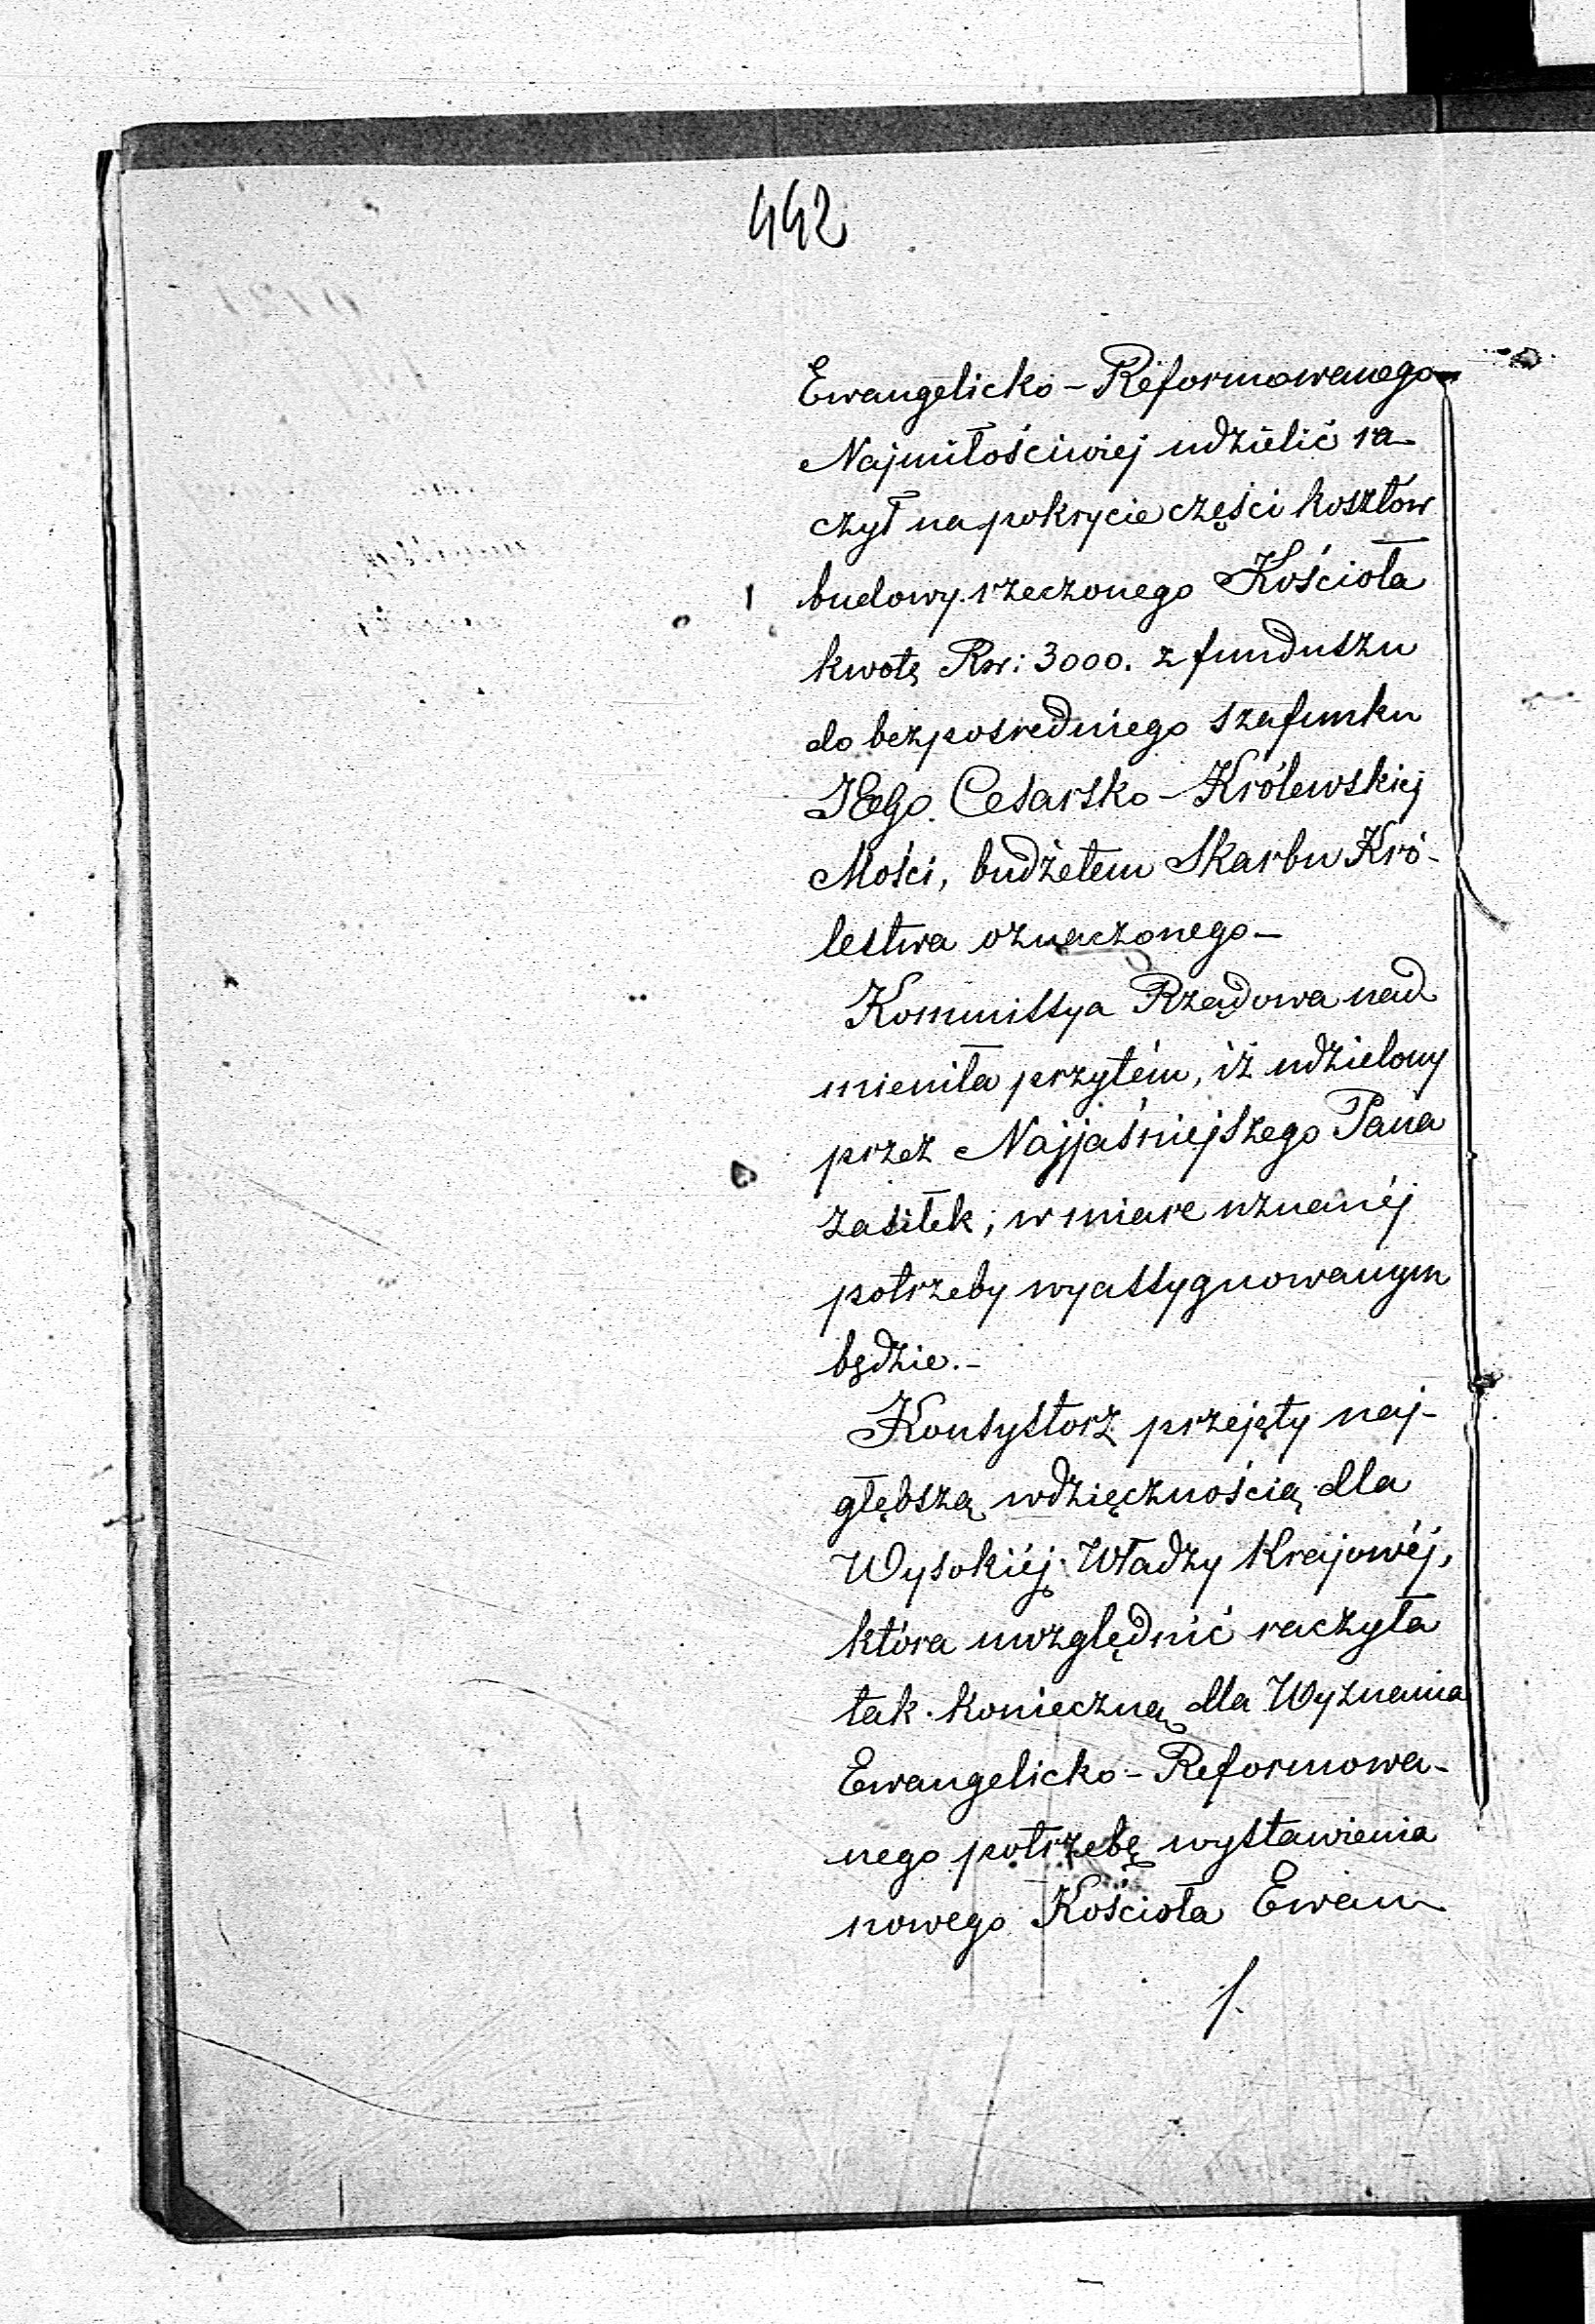 442
Ewangelicko-Reformowanego
Najmiłościwiej udzielić ra-
czył na pokrycie części kosztów
budowy rzeczonego Kościoła
kwotę Rsr: 3000. z funduszu
do bezpośredniego szafunku
JEgo Cesarsko-Królewskiej
Mości, budżetem Skarbu Kró-
lestwa oznaczonego-
Kommissya Rządowa nad
mieniła przytém, iż udzielony
przez Najjaśniejszego Pana
zasiłek, w miarę uznanéj
potrzeby wyassygnowanym
będzie.-
Konsystorz przejęty naj-
głębszą wdzięcznością dla
Wysokiéj Władzy Krajowéj,
która uwzględnić raczyła
tak konieczną dla Wyznania
Ewangelicko-Reformowa-
nego potrzebę wystawienia
nowego Kościoła Ewan-